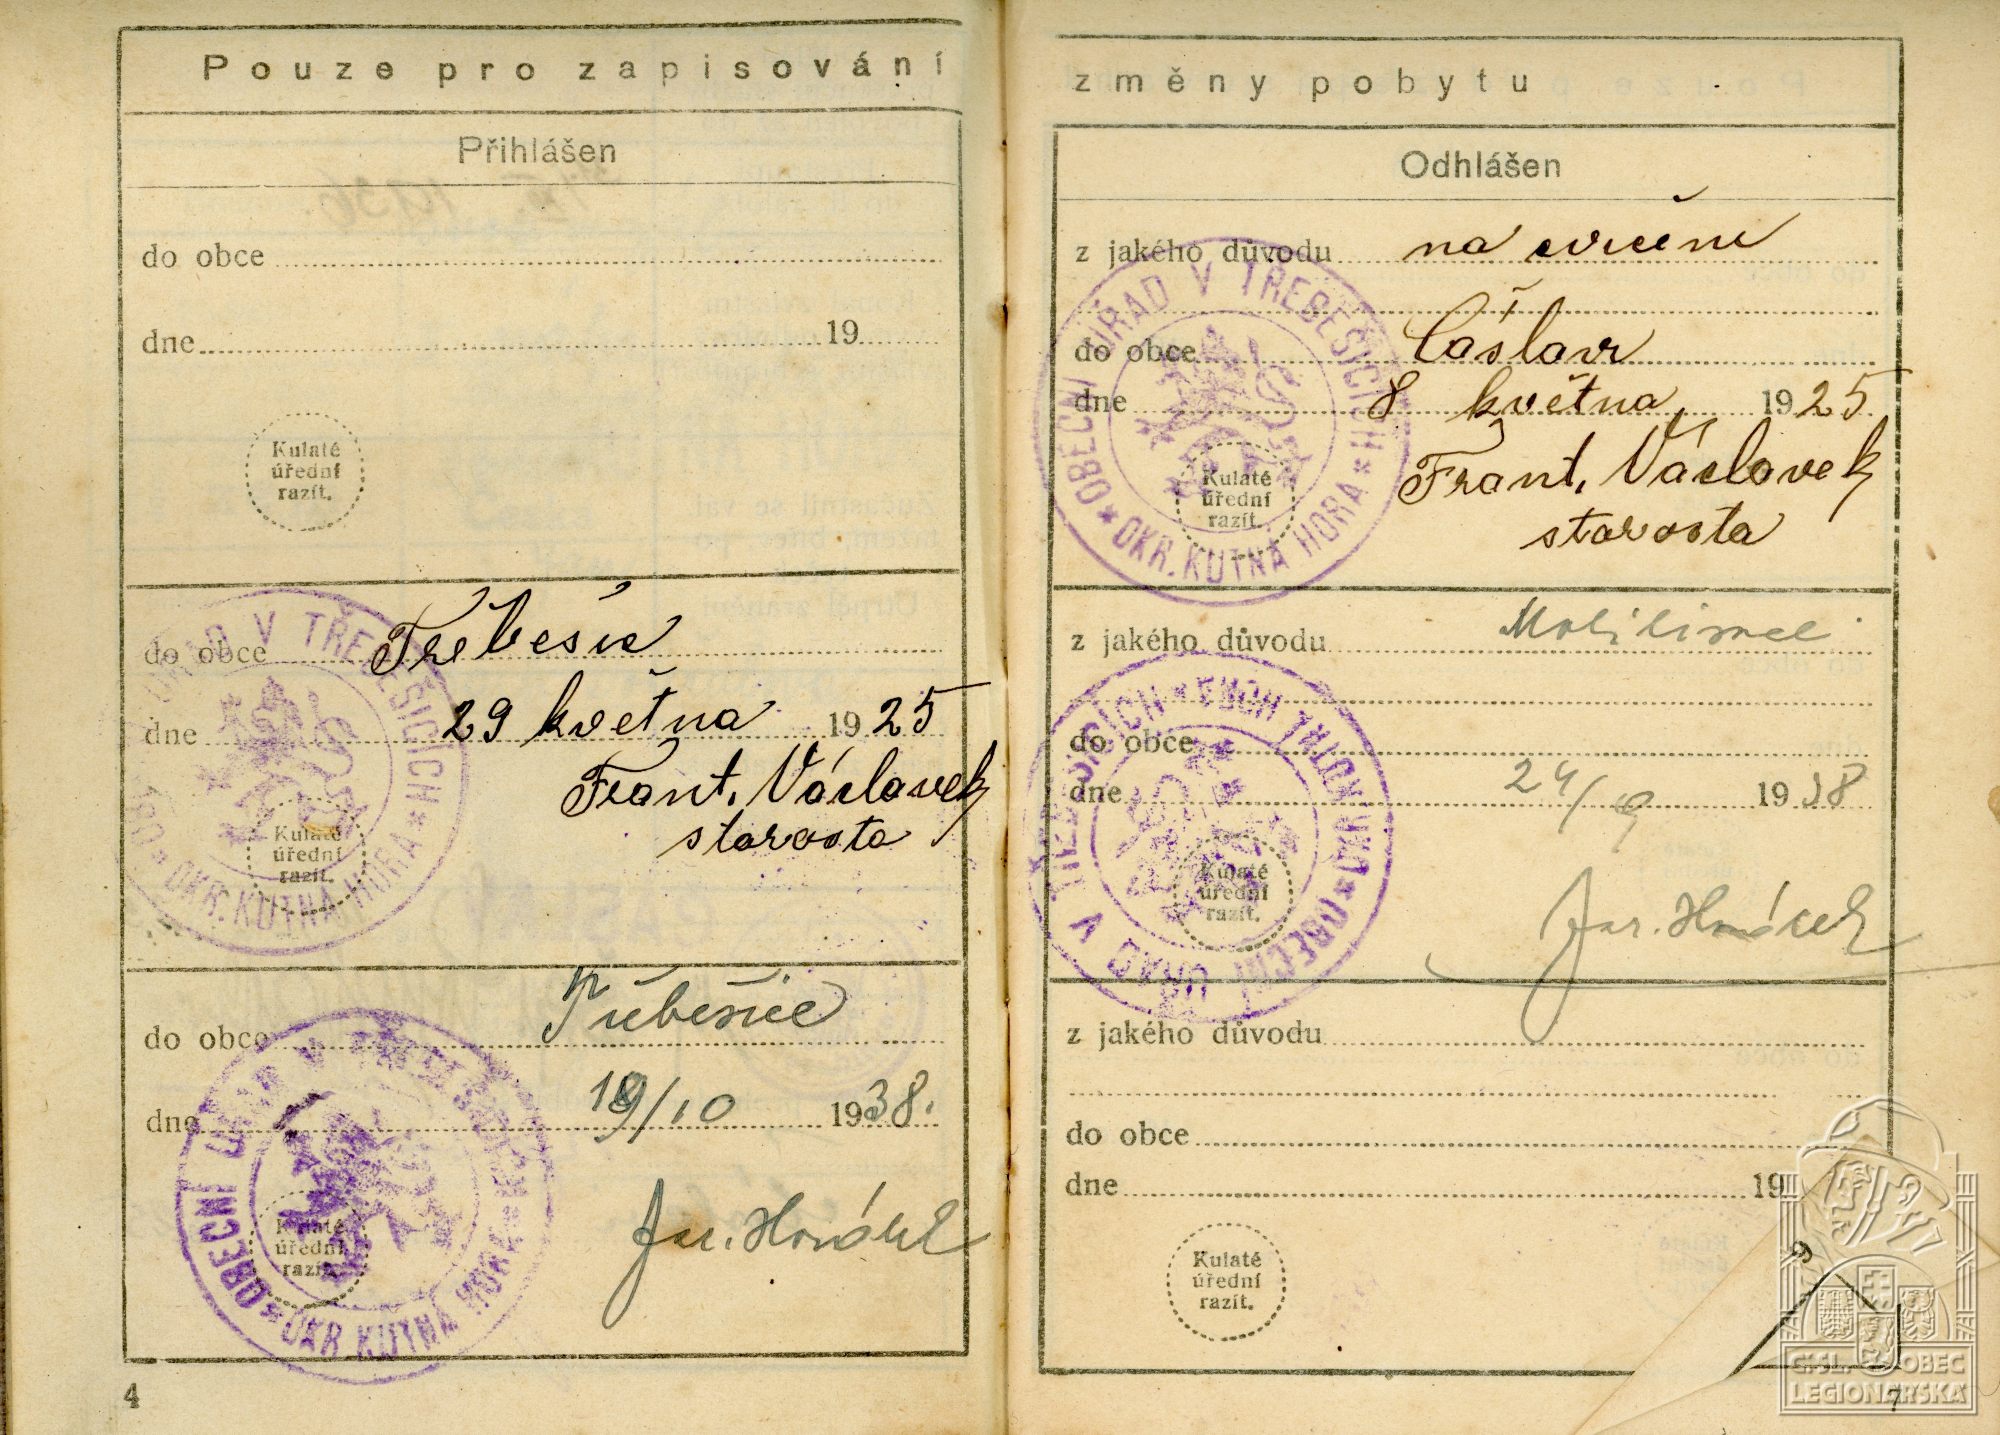 Pouze pro zapisování
Přihlášen
do obce
dne 19
Kulaté
úřední
razít.
do obce Třebešic
dne 29 května 1925
Frant. Václavek
starosta
ÚŘAD V TŘEBEŠICÍCH * OKR. KUTNÁ HORA *
Kulaté
úřední
razít.
do obce Třebešice
dne 19/10 1938.
OBECNÍ ÚŘAD V TŘEBEŠICÍCH * OKR. KUTNÁ HORA *
Kulaté
úřední
razít.
4
změny pobytu
Odhlášen
z jakého důvodu na cvičení
do obce Čáslav
dne 8 května 1925
Frant. Václavek
starosta
OBECNÍ ÚŘAD V TŘEBEŠICÍCH * OKR. KUTNÁ HORA *
Kulaté
úřední
razít.
z jakého důvodu
do obce
dne 24/9 1938
OBECNÍ ÚŘAD V TŘEBEŠICÍCH * OKR. KUTNÁ HORA *
Kulaté
úřední
razít.
z jakého důvodu
do obce
dne 19
Kulaté
úřední
razít.
9
7
Č.SL. OBEC
LEGIONÁŘSKÁ